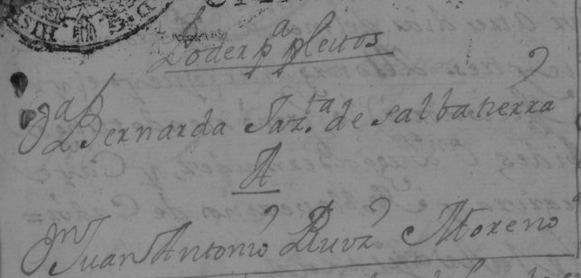 Poder pa pleitos
Da Bernarda Jazta de salbatierra
A
Dn Juan Antonio Ruvz Moreno